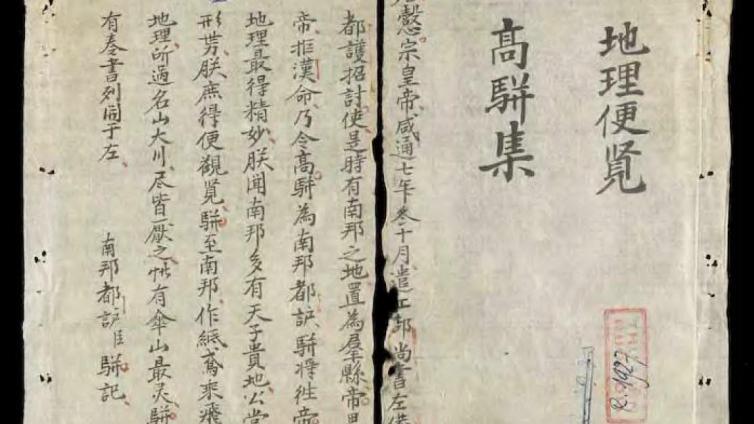 地理便覧
髙駢集
懿宗皇帝咸通七年十月遣工部尚書左
都護招討使是時有南邦之地置為縣帝
帝拒漢命乃令髙駢為南邦都护駢将徃帝
地理最得精妙朕聞南邦多有天子貴地公當
形势朕庶得便觀覧駢至南邦作紙鳶乘飛
地理所過名山大川尽皆厭之惟有傘山最灵駢
有奏書列同于左
南邦都护臣駢記
R.1927